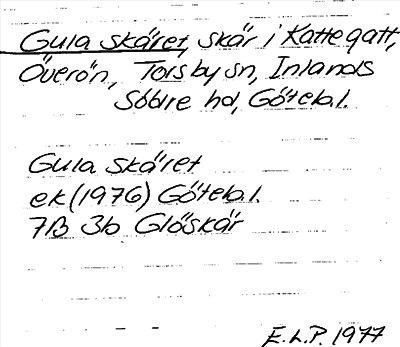 Gula skäret, skär i Kattegatt,
Överön, Torsby sn, Inlands
Södre hd, Göteb.l.
Gula skäret
ek (1976) Göteb.l.
7B 3b Glöskär
E.L.P. 1977